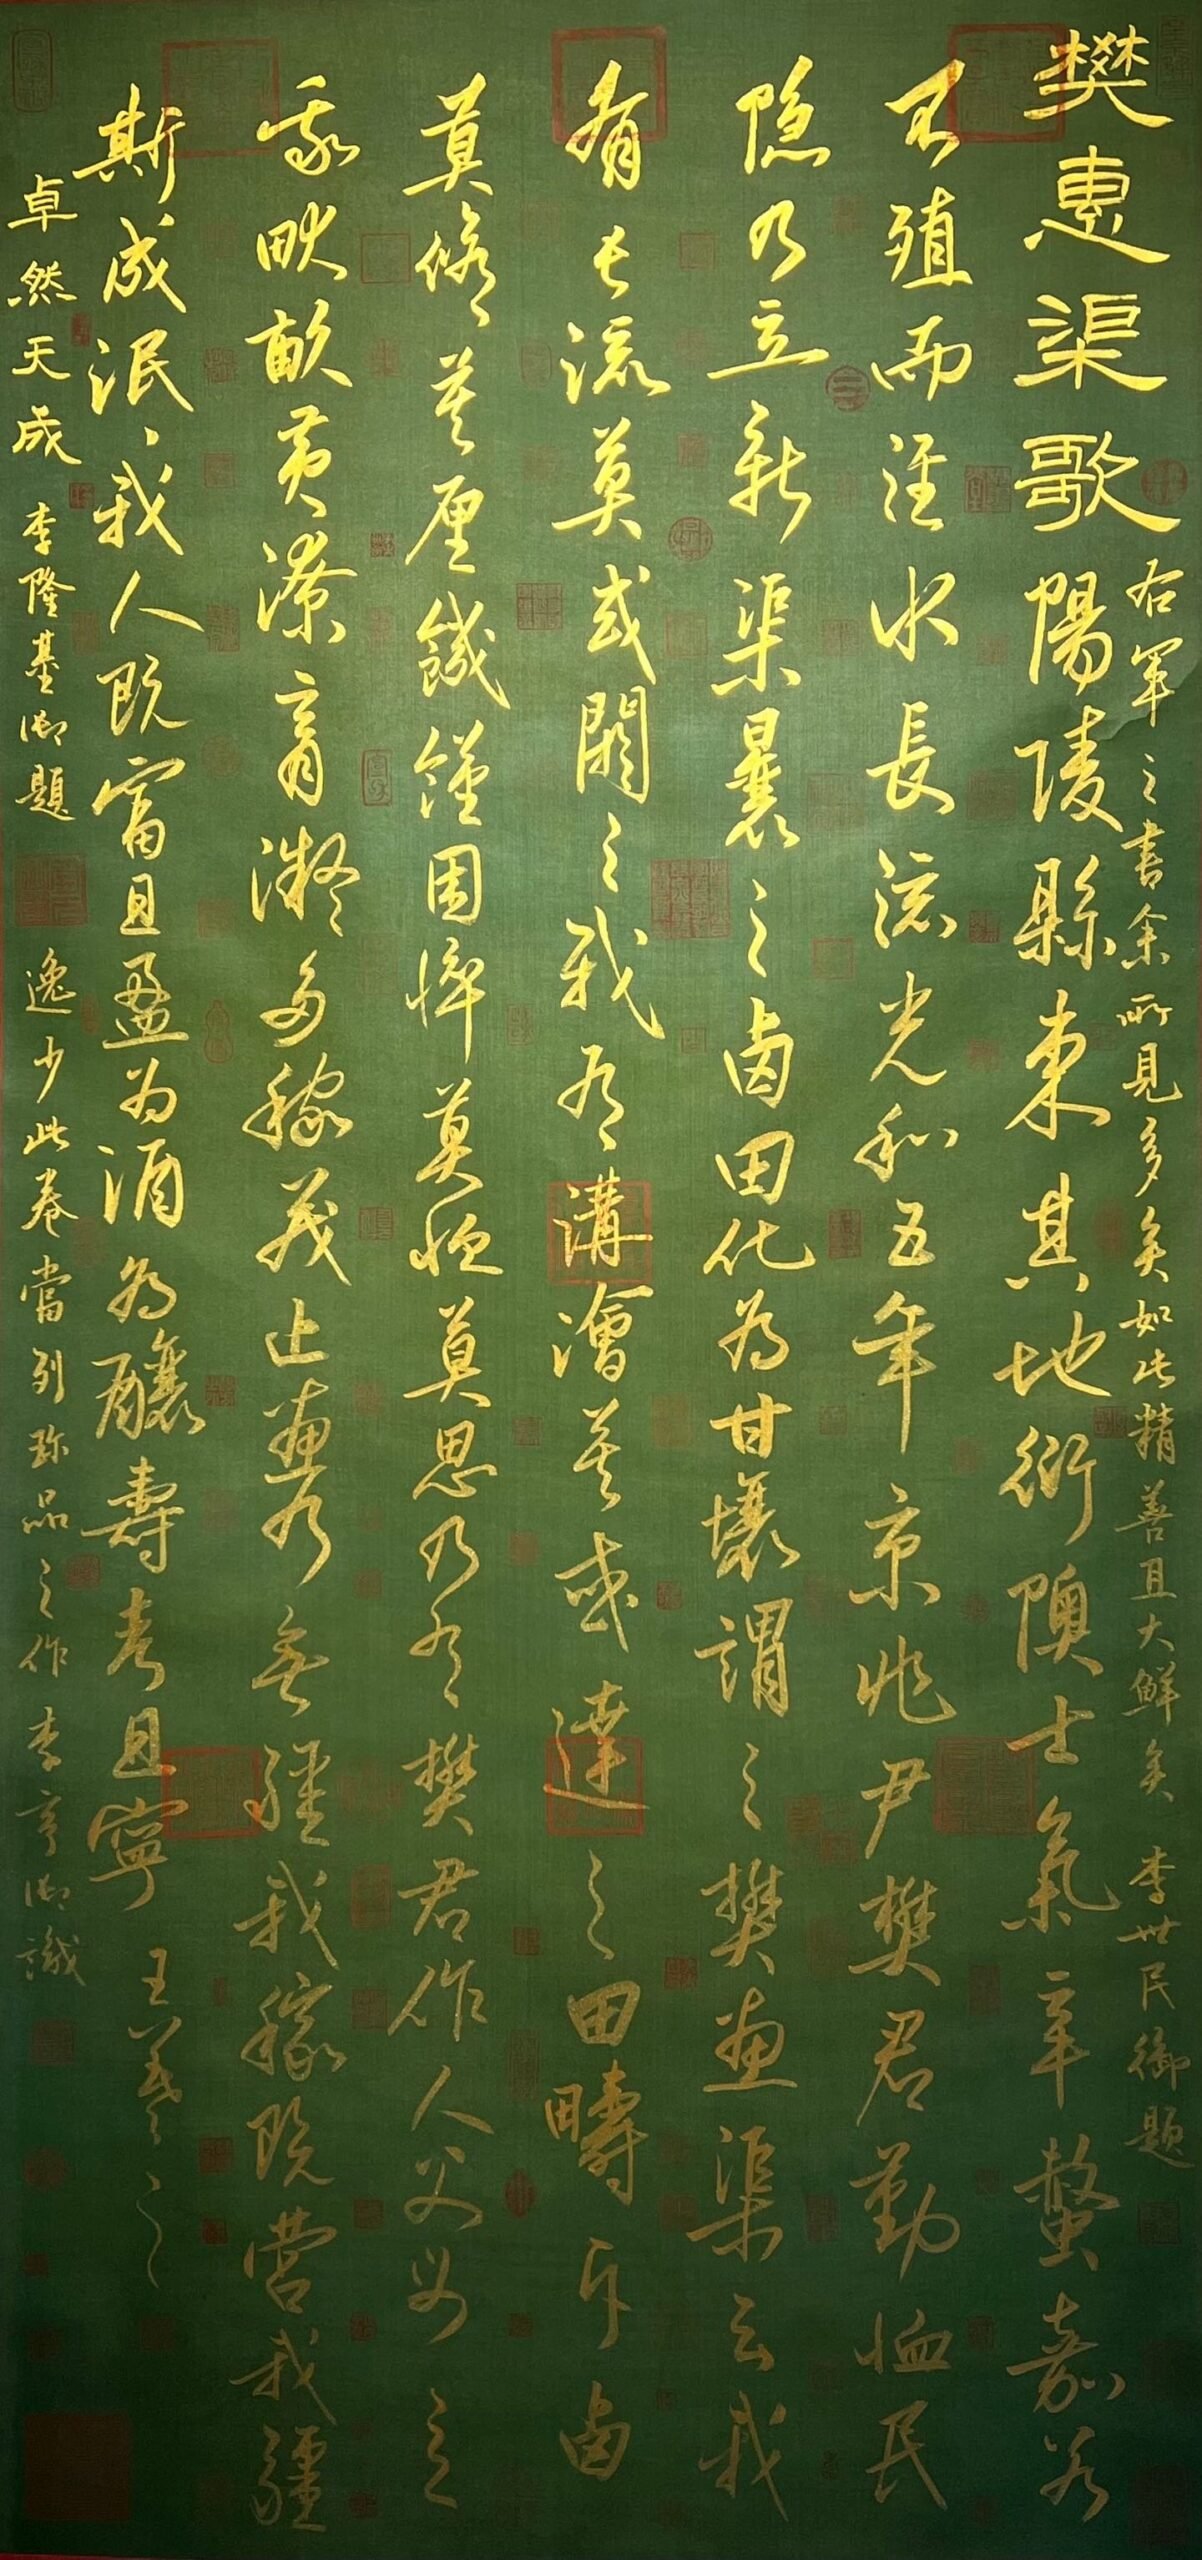 右軍之書余所見多矣如此精善且大鮮矣 李世民御題
樊惠渠歌陽陵縣東其地衍隩土氣辛螫嘉谷
不殖而涇水長流光和五年京兆尹樊君勤恤民
隐乃立新渠曩之鹵田化為甘壤謂之樊惠渠云我
有長流莫或閼之我有溝澮莫或達之田疇斥鹵
莫修莫厘饑饉困悴莫恤莫思乃有樊君作人父母立
我畎畝黃潦膏凝多稼茂止惠乃無疆我稼既營我疆
斯成泯泯我人既富且盈為酒為釀壽考且寧 王羲之
卓然天成 李隆基御題 逸少此卷當列珍品之作 李亨御識